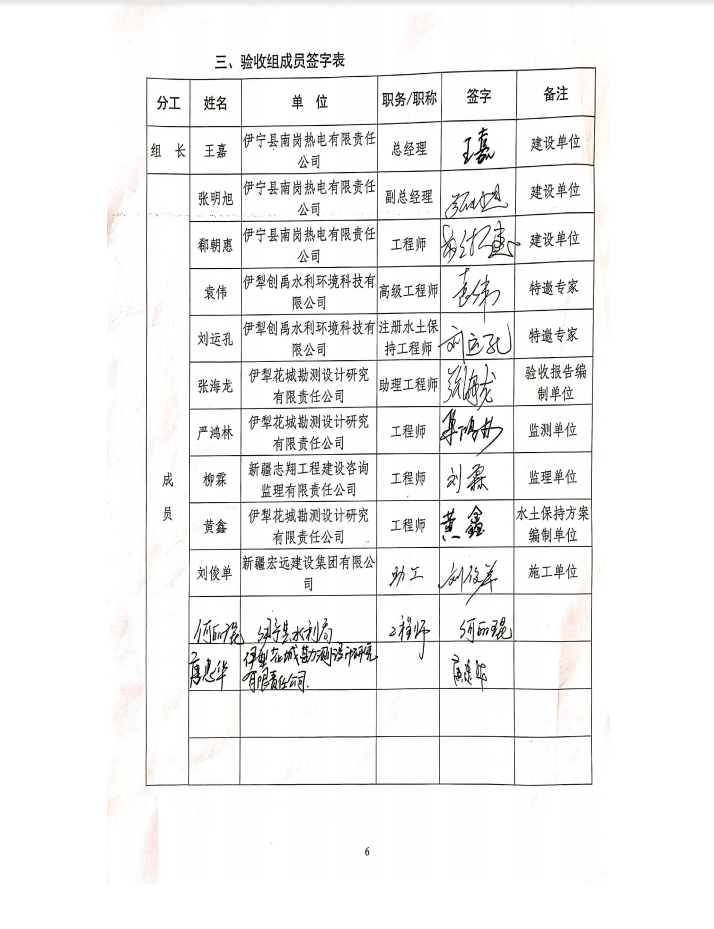 三、验收组成员签字表
分工 姓名 单 位 职务/职称 签字 备注
组 长 王嘉 伊宁县南岗热电有限责任 总经理 王嘉 建设单位
公司
张明旭 伊宁县南岗热电有限责任 副总经理 建设单位
公司
郗朝惠 伊宁县南岗热电有限责任 工程师 建设单位
公司
袁伟 伊犁创禹水利环境科技有 高级工程师 袁伟 特邀专家
限公司
刘运孔 伊犁创禹水利环境科技有 注册水土保 刘运孔 特邀专家
限公司 持工程师
张海龙 伊犁花城勘测设计研究 助理工程师 张海龙 验收报告编
有限责任公司 制单位
严鸿林 伊犁花城勘测设计研究 工程师 监测单位
有限责任公司
成
员
柳霖 新疆志翔工程建设咨询 工程师 刘霖 监理单位
监理有限责任公司
黄鑫 伊犁花城勘测设计研究 工程师 黄鑫 水土保持方案
有限责任公司 编制单位
刘俊单 新疆宏远建设集团有限公 助工 施工单位
司
水利局 工程师
伊犁花城勘测设计研究
有限责任公司.
6